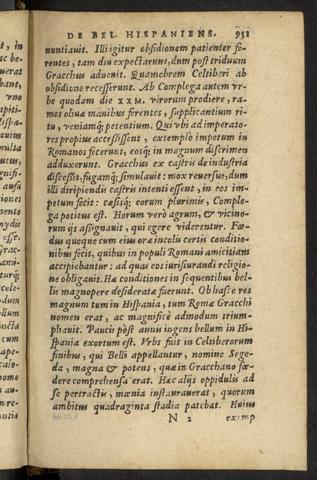 DE BEL. HISPANIENS. 931
nuntiauit. Illi igitur obsidionem patienter fe-
rentes, tam diu expectarunt, dum post triduum
Gracchus aduenit. Quamobrem Celtiberi ab
obsidione recesserunt. Ab Complega autem vr-
be quodam die XXM. virorum prodiere, ra-
mos oliuæ manibus ferentes, supplicantium ri-
tu, veniamq; petentium. Qui vbi ad imperato-
res propius accessissent, extemplò impetum in
Romanos fecerunt, eosq; in magnum discrimen
adduxerunt. Gracchus ex castris de industria
discessit, fugamq; simulauit: mox reuersus, dum
illi diripiendis castris intenti essent, in eos im-
petum fecit: cæsisq; eorum plurimis, Comple-
ga potitus est. Horum verò agrum, & vicino-
rum ijs assignauit, qui egere viderentur. Fœ-
dus quoque cum eius oræ incolis certis conditio-
nibus fecit, quibus in populi Romani amicitiam
accipiebantur: ad quas eos iurisiurandi religio-
ne obligauit. Hæ conditiones in sequentibus bel-
lis magnopere desideratæ fuerunt. Ob hasce res
magnum tum in Hispania, tum Romæ Gracchi
nomen erat, ac magnificè admodum trium-
phauit. Paucis pòst annis ingens bellum in Hi-
spania exortum est. Vrbs fuit in Celtiberorum
finibus, qui Belli appellantur, nomine Sege-
da, magna & potens, quæ in Gracchano fœ-
dere comprehensa erat. Hæc alijs oppidulis ad
se pertractis, mœnia instaurauerat, quorum
ambitus quadraginta stadia patebat. Huius
N 2 exemp